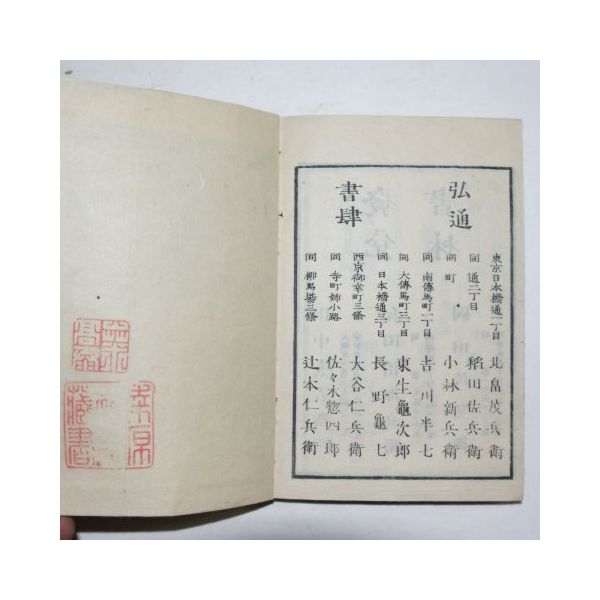 弘通
書肆
東京日本橋通一丁目 北畠茂兵衛
同 通二丁目 稻田佐兵衛
同 町 小林新兵衛
同 南傳馬町一丁目 吉川半七
同 大傳馬町三丁目 東生龜次郎
同 日本橋通三丁目 長野龜七
西京御幸町三條 大谷仁兵衛
同 寺町姉小路 佐々木惣四郎
同 柳馬塲三條 辻本仁兵衛
藏書